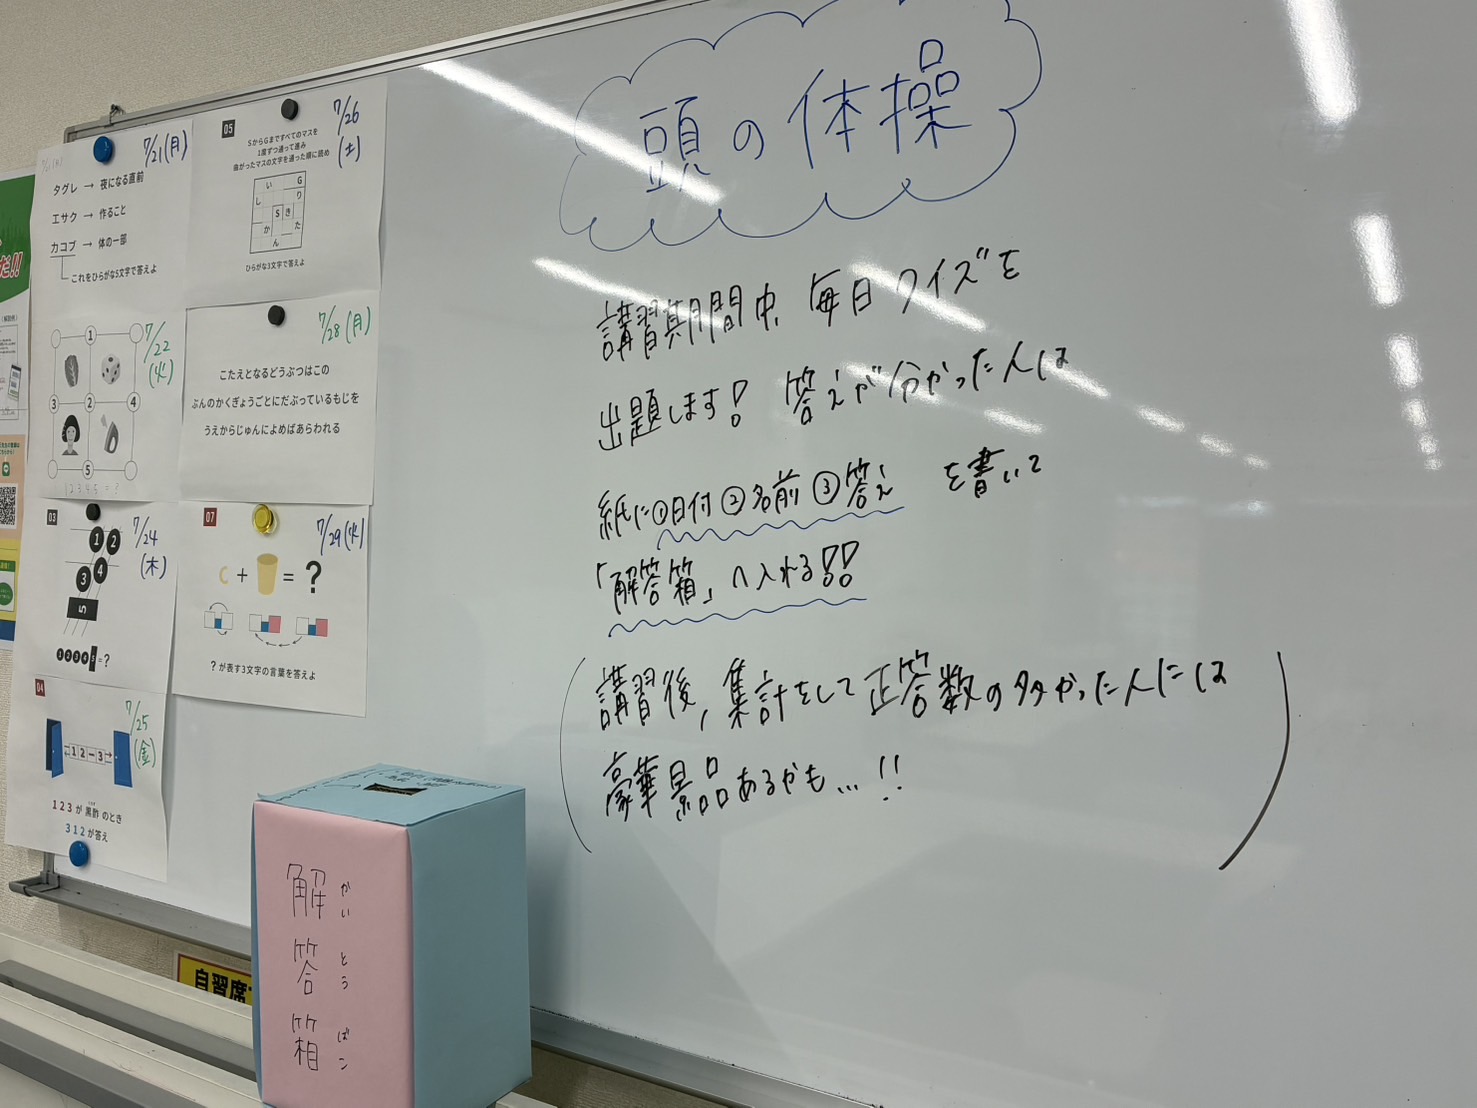 頭の体操
講習期間中、毎日クイズを
出題します! 答えが分かった人は
紙に①日付②名前③答え を書いて
「解答箱」へ入れる!!
(講習後,集計をして正答数の多かった人には
豪華景品あるかも...!!)
7/21(月)
タグレ → 夜になる直前
エサク → 作ること
カコブ → 体の一部
これをひらがな5文字で答えよ
7/22(火)
1
3 2 4
5
1 2 3 4 5 = ?
03
7/24(木)
1 2
3 4
5
1 2 3 4 5 = ?
04
7/25(金)
←1 2 − 3→
1 2 3 が 黒酢 のとき
3 1 2 が答え
05
7/26(土)
SからGまですべてのマスを
1度ずつ通って進み
曲がったマスの文字を通った順に読め
い G
し り
S き
か た
ん
ひらがな3文字で答えよ
7/28(月)
こたえとなるどうぶつはこの
ぶんのかくぎょうごとにだぶっているもじを
うえからじゅんによめばあらわれる
07
7/29(火)
+ = ?
? が表す3文字の言葉を答えよ
解答箱
かいとうばこ
自習席
だ!!